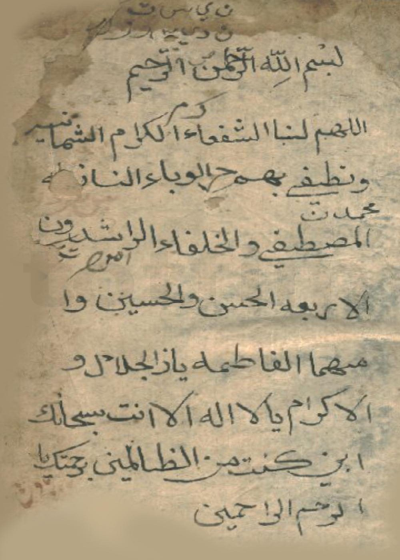 بسم الله الرحمن الرحيم
اللهم لنا الشفعاء الكرام الثمانيه
كرم
ونطفي بهم حر الوباء النازله
محمدن
المصطفي والخلفاء الراشدون
الاربعه الحسن والحسين وا
منهما الفاطمه ياذالجلال و
الاكرام يا لا اله الا انت سبحانك
اني كنت من الظالمين برحمتك يا
ارحم الراحمين